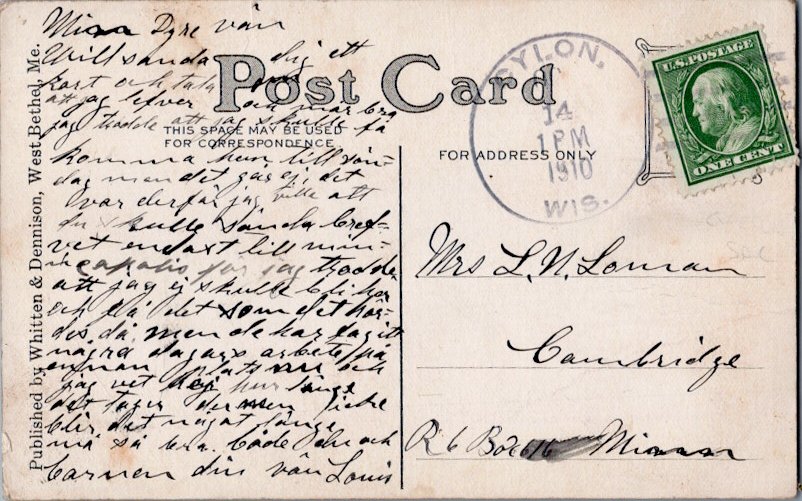 Published by Whitten & Dennison, West Bethel, Me.
Post Card
THIS SPACE MAY BE USED
FOR CORRESPONDENCE
FOR ADDRESS ONLY
CYLON.
14
1 PM
1910
WIS.
U.S. POSTAGE
ONE CENT
Dyre vän
Will sända dig ett
kort och tala om
att jag lefver och mår bra
jag trodde att jag skulle få
komma hem till sön-
dag men det går ej, det
var derför jag ville att
du skulle sända bref-
vet endast till min-
jag trodde
att jag ej skulle bli här
och då det som det hör-
des då men de har fagitt
några dagars arbete på
en plats och
jag vet ej hur länge
det tager der men icke
blir det något länge
må så bra både du och
barnen din vän Louis
Mrs L. N. Loman
Cambridge
R 6 Box 616 Minn